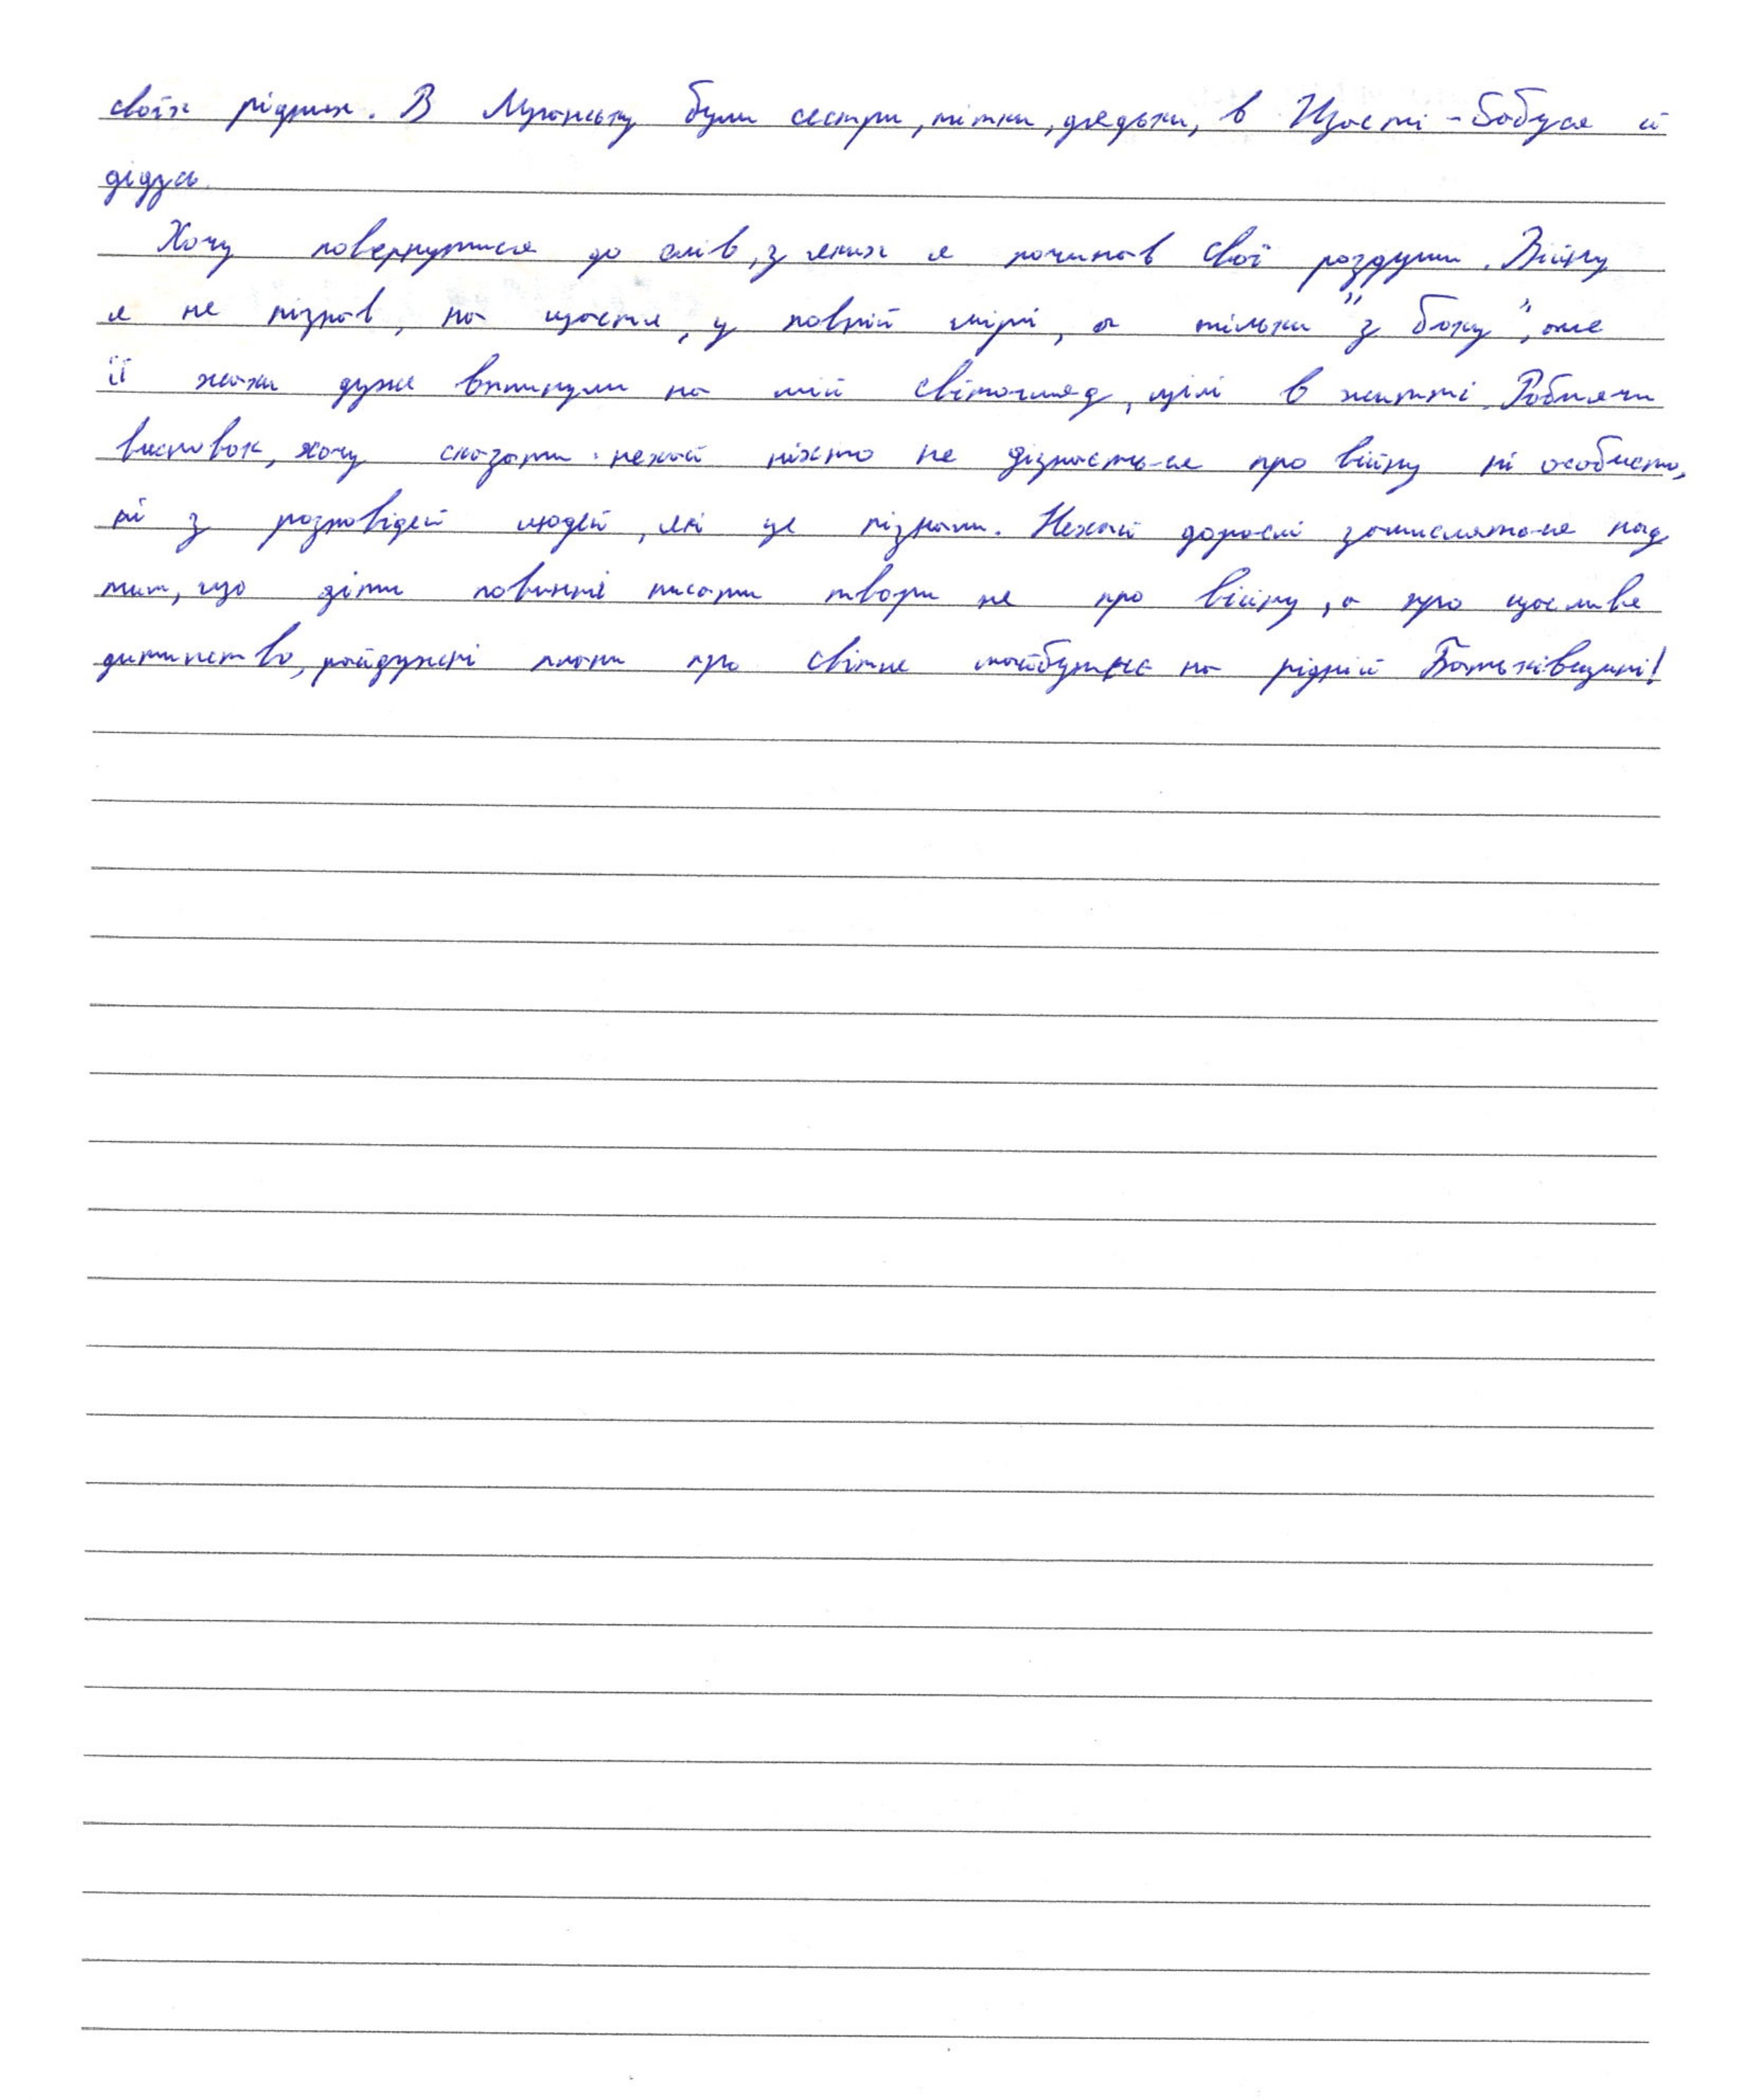 своїх рідних. В Луганську були сестри, тітки, дядьки, в Щасті - бабуся й
дідусь.
Хочу повернутися до слів, з яких я починав свої роздуми. Війну
я не пізнав, на щастя, у повній мірі, а тільки "з боку", але
її жахи дуже вплинули на мій світогляд, цілі в житті. Роблячи
висновок, хочу сказати: нехай ніхто не дізнається про війну ні особисто,
ні з розповідей людей, які це пізнали. Нехай дорослі замисляться над
тим, що діти повинні писати твори не про війну, а про щасливе
дитинство, райдужні плани про світле майбутнє на рідній Батьківщині!